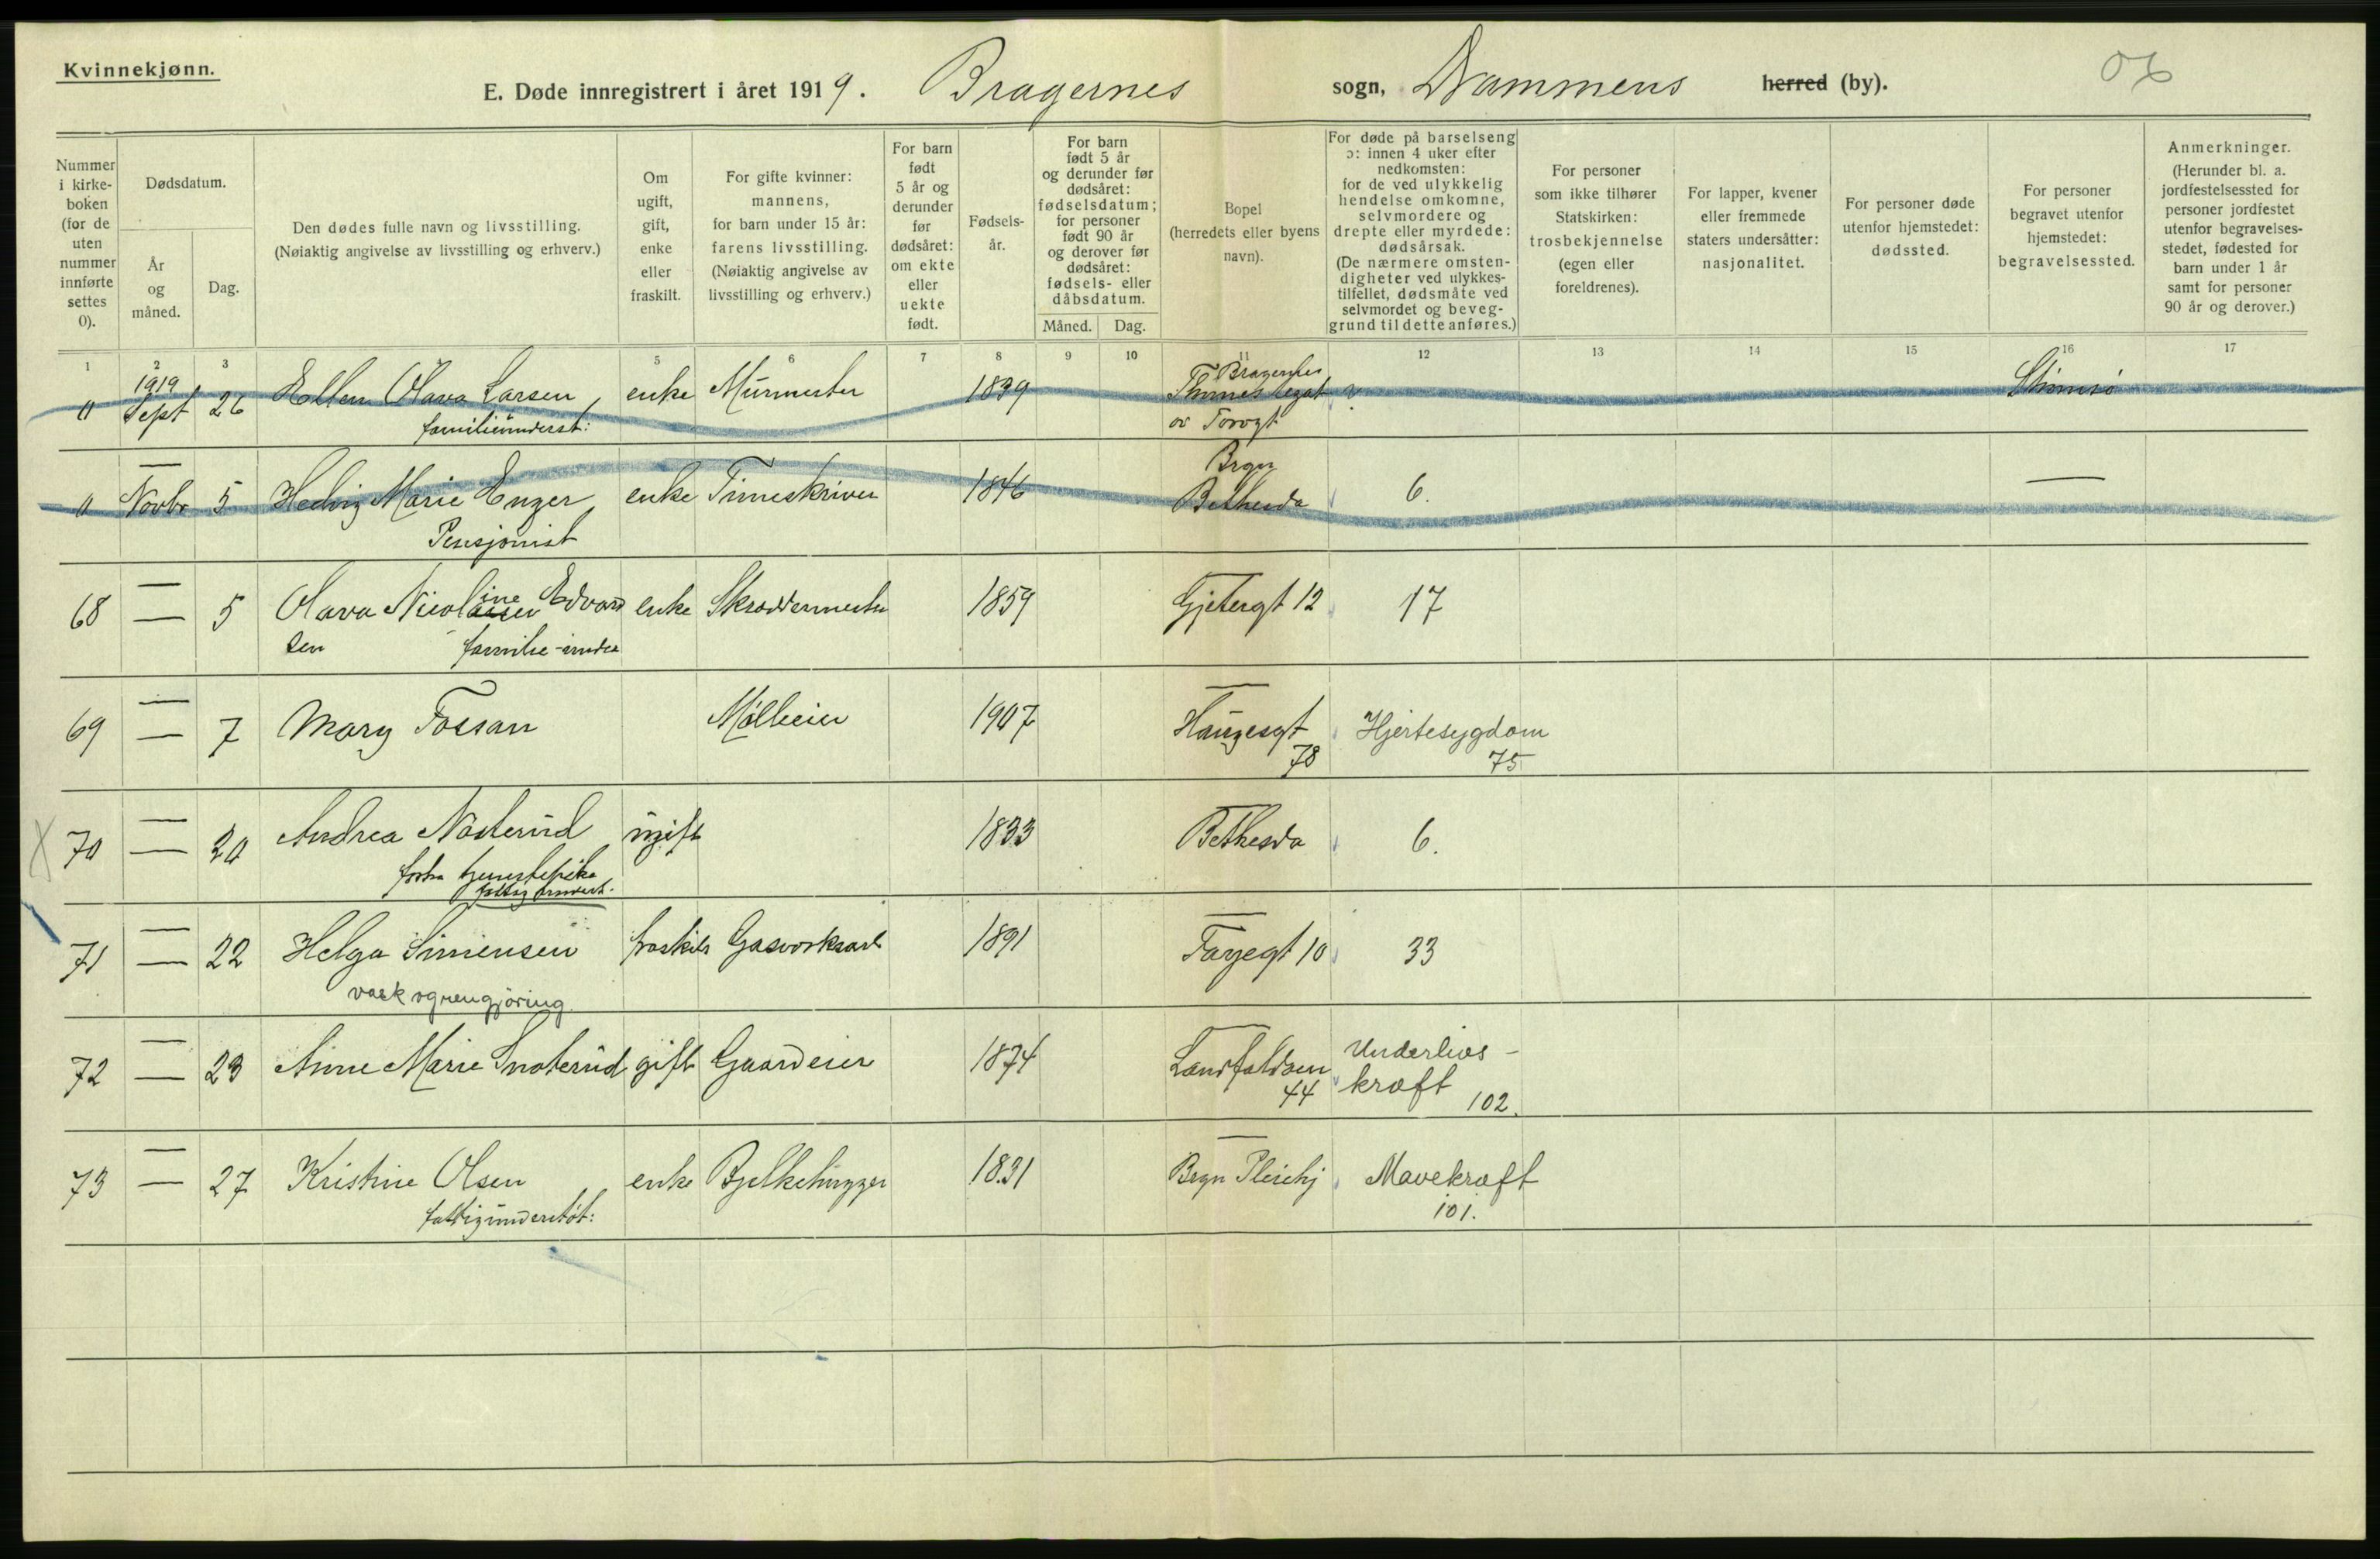 Kvinnekjønn.
E. Døde innregistrert i året 1919. Bragernes sogn, Drammens herred (by).
Nummer i kirkeboken (for de uten nummer innførte settes 0).
Dødsdatum.
År og måned.
Dag.
Den dødes fulle navn og livsstilling.
(Nøiaktig angivelse av livsstilling og erhverv.)
Om ugift, gift, enke eller fraskilt.
For gifte kvinner: mannens, for barn under 15 år: farens livsstilling. (Nøiaktig angivelse av livsstilling og erhverv.)
For barn født 5 år og derunder før dødsåret: om ekte eller uekte født.
Fødselsår.
For barn født 5 år og derunder før dødsåret: fødselsdatum; for personer født 90 år og derover før dødsåret: fødsels- eller dåbsdatum.
Måned. Dag.
Bopel (herredets eller byens navn).
For døde på barselseng ɔ: innen 4 uker efter nedkomsten: for de ved ulykkelig hendelse omkomne, selvmordere og drepte eller myrdede: dødsårsak. (De nærmere omstendigheter ved ulykkestilfellet, dødsmåte ved selvmordet og beveggrund til dette anføres.)
For personer som ikke tilhører Statskirken: trosbekjennelse (egen eller foreldrenes).
For lapper, kvener eller fremmede staters undersåtter: nasjonalitet.
For personer døde utenfor hjemstedet: dødssted.
For personer begravet utenfor hjemstedet: begravelsessted.
Anmerkninger. (Herunder bl. a. jordfestelsessted for personer jordfestet utenfor begravelsesstedet, fødested for barn under 1 år samt for personer 90 år og derover.)
1 2 3 5 6 7 8 9 10 11 12 13 14 15 16 17
1919 Bragernes
0 Sept 26 Ellen Olava Larsen enke Murmester 1839 Thornes legat Strømsø
familieunderst: ov Torvgt
Brgn
0 Novbr 5 Hedvig Marie Enger enke Timeskriver 1846 Bethesda 6. —
Pensjonist
68 — 5 Olava Nicoline Edvard enke Skreddermester 1859 Gjetergt 12 17
sen familie-under
69 — 7 Mary Fossan Mølleeier 1907 Haugesgt Hjertesygdom
78 75
70 — 20 Andrea Nøsterud ugift 1833 Bethesda 6.
forhv tjenestepike
fattig underst.
71 — 22 Helga Simensen fraskilt Gasverksarb 1891 Fayegt 10 33
vask og rengjøring
72 — 23 Anne Marie Snoterud gift Gaardeier 1874 Landfaldøen Underlivs-
44 kræft 102.
73 — 27 Kristine Olsen enke Bjelkehugger 1831 Brgn Pleiehj Mavekræft
fattigunderstøt: 101.